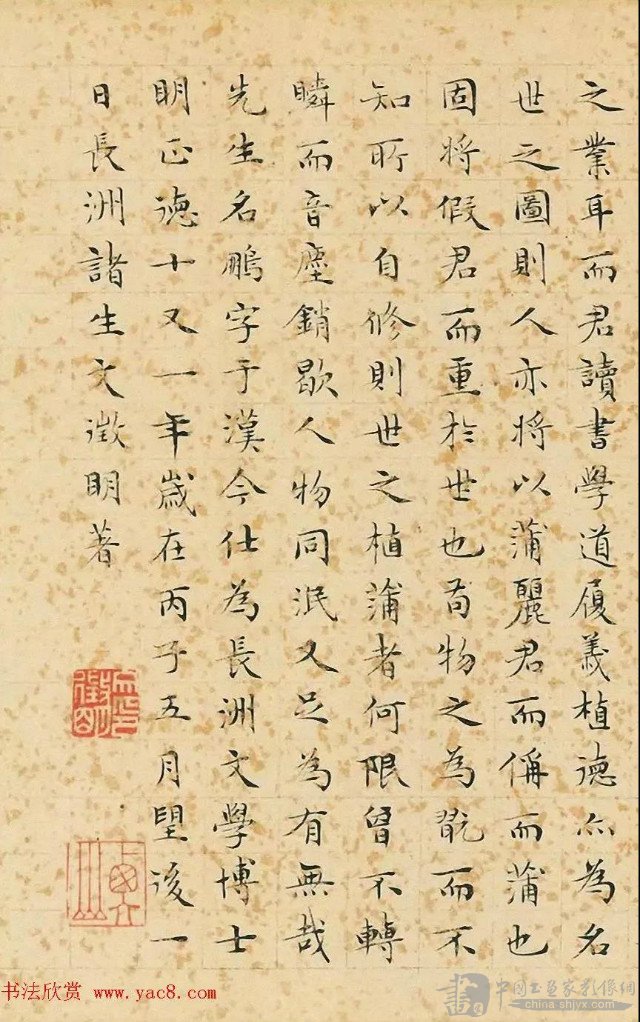 之業耳而君讀書學道履義植德亦為名
世之圖則人亦將以蒲麗君而偁而蒲也
固將假君而重於世也苟物之為翫而不
知所以自修則世之植蒲者何限曾不轉
瞬而音塵銷歇人物同泯又足為有無哉
先生名鵬字于漢今仕為長洲文學博士
明正德十又一年歲在丙子五月望後一
日長洲諸生文徵明著
徵明
书法欣赏 www.yac8.com
中国书画家影像网
china-shjyx.com